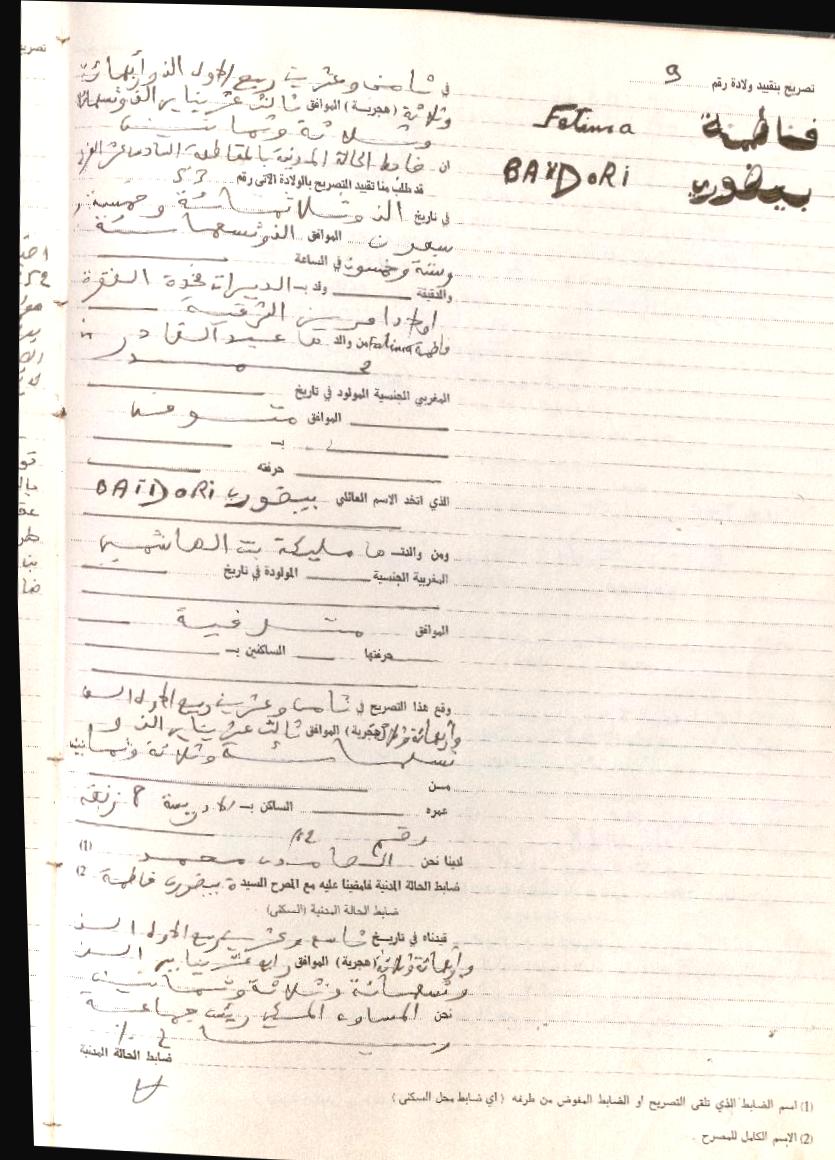 تصريح بتقييد ولادة رقم 9
فاطمة Fatima
بيضوري BAÏDORI
في ثامن وعشرين ربيع الاول الف وأربعمائة
وثلاثة (هجرية) الموافق ثالث عشر يناير الف وتسعمائة
وثلاثة وثمانين
ان ضابط الحالة المدنية بالمقاطعة السادسة عشر
قد طلب منا تقييد التصريح بالولادة الآتى رقم 53
في تاريخ الف وثلاثمائة وخمسة و
سبعون الموافق الف وتسعمائة
وستة وخمسون في الساعة
والدقيقة وقد بـ
اولاد امرين الشرقية
فاطمة Fatima من والد ها عبد القادر بن
محمد
المغربي الجنسية المولود في تاريخ
الموافق متوفى
بـ
حرفته
الذي اتخد الاسم العائلي بيضوري BAÏDORI
ومن والدتـ ها مليكة بنت الهاشمي
المغربية الجنسية المولودة في تاريخ
الموافق متوفية
حرفتها الساكنين بـ
وقع هذا التصريح في ثامن وعشرين ربيع الاول الف
وأربعمائة وثلاثة (هجرية) الموافق ثالث عشر يناير الف و
تسعمائة وثلاثة وثمانين
مـن
عمره الساكن بـ الادريسية 8 زنقة
رقم
لدينا نحن محمد (1)
ضابط الحالة المدنية فامضينا عليه مع المصرح السيدة بيضوري فاطمة (2
ضابط الحالة المدنية (السكنى)
قيدناه في تاريخ تاسع وعشرين ربيع الاول الف
وأربعمائة وثلاثة (هجرية) الموافق رابع عشر يناير الف
وتسعمائة وثلاثة وثمانين
نحن رئيس جماعة
ضابط الحالة المدنية
(1) اسم الضابط الذي تلقى التصريح او الضابط المفوض من طرفه (اي ضابط محل السكنى)
(2) الاسم الكامل للمصرح .